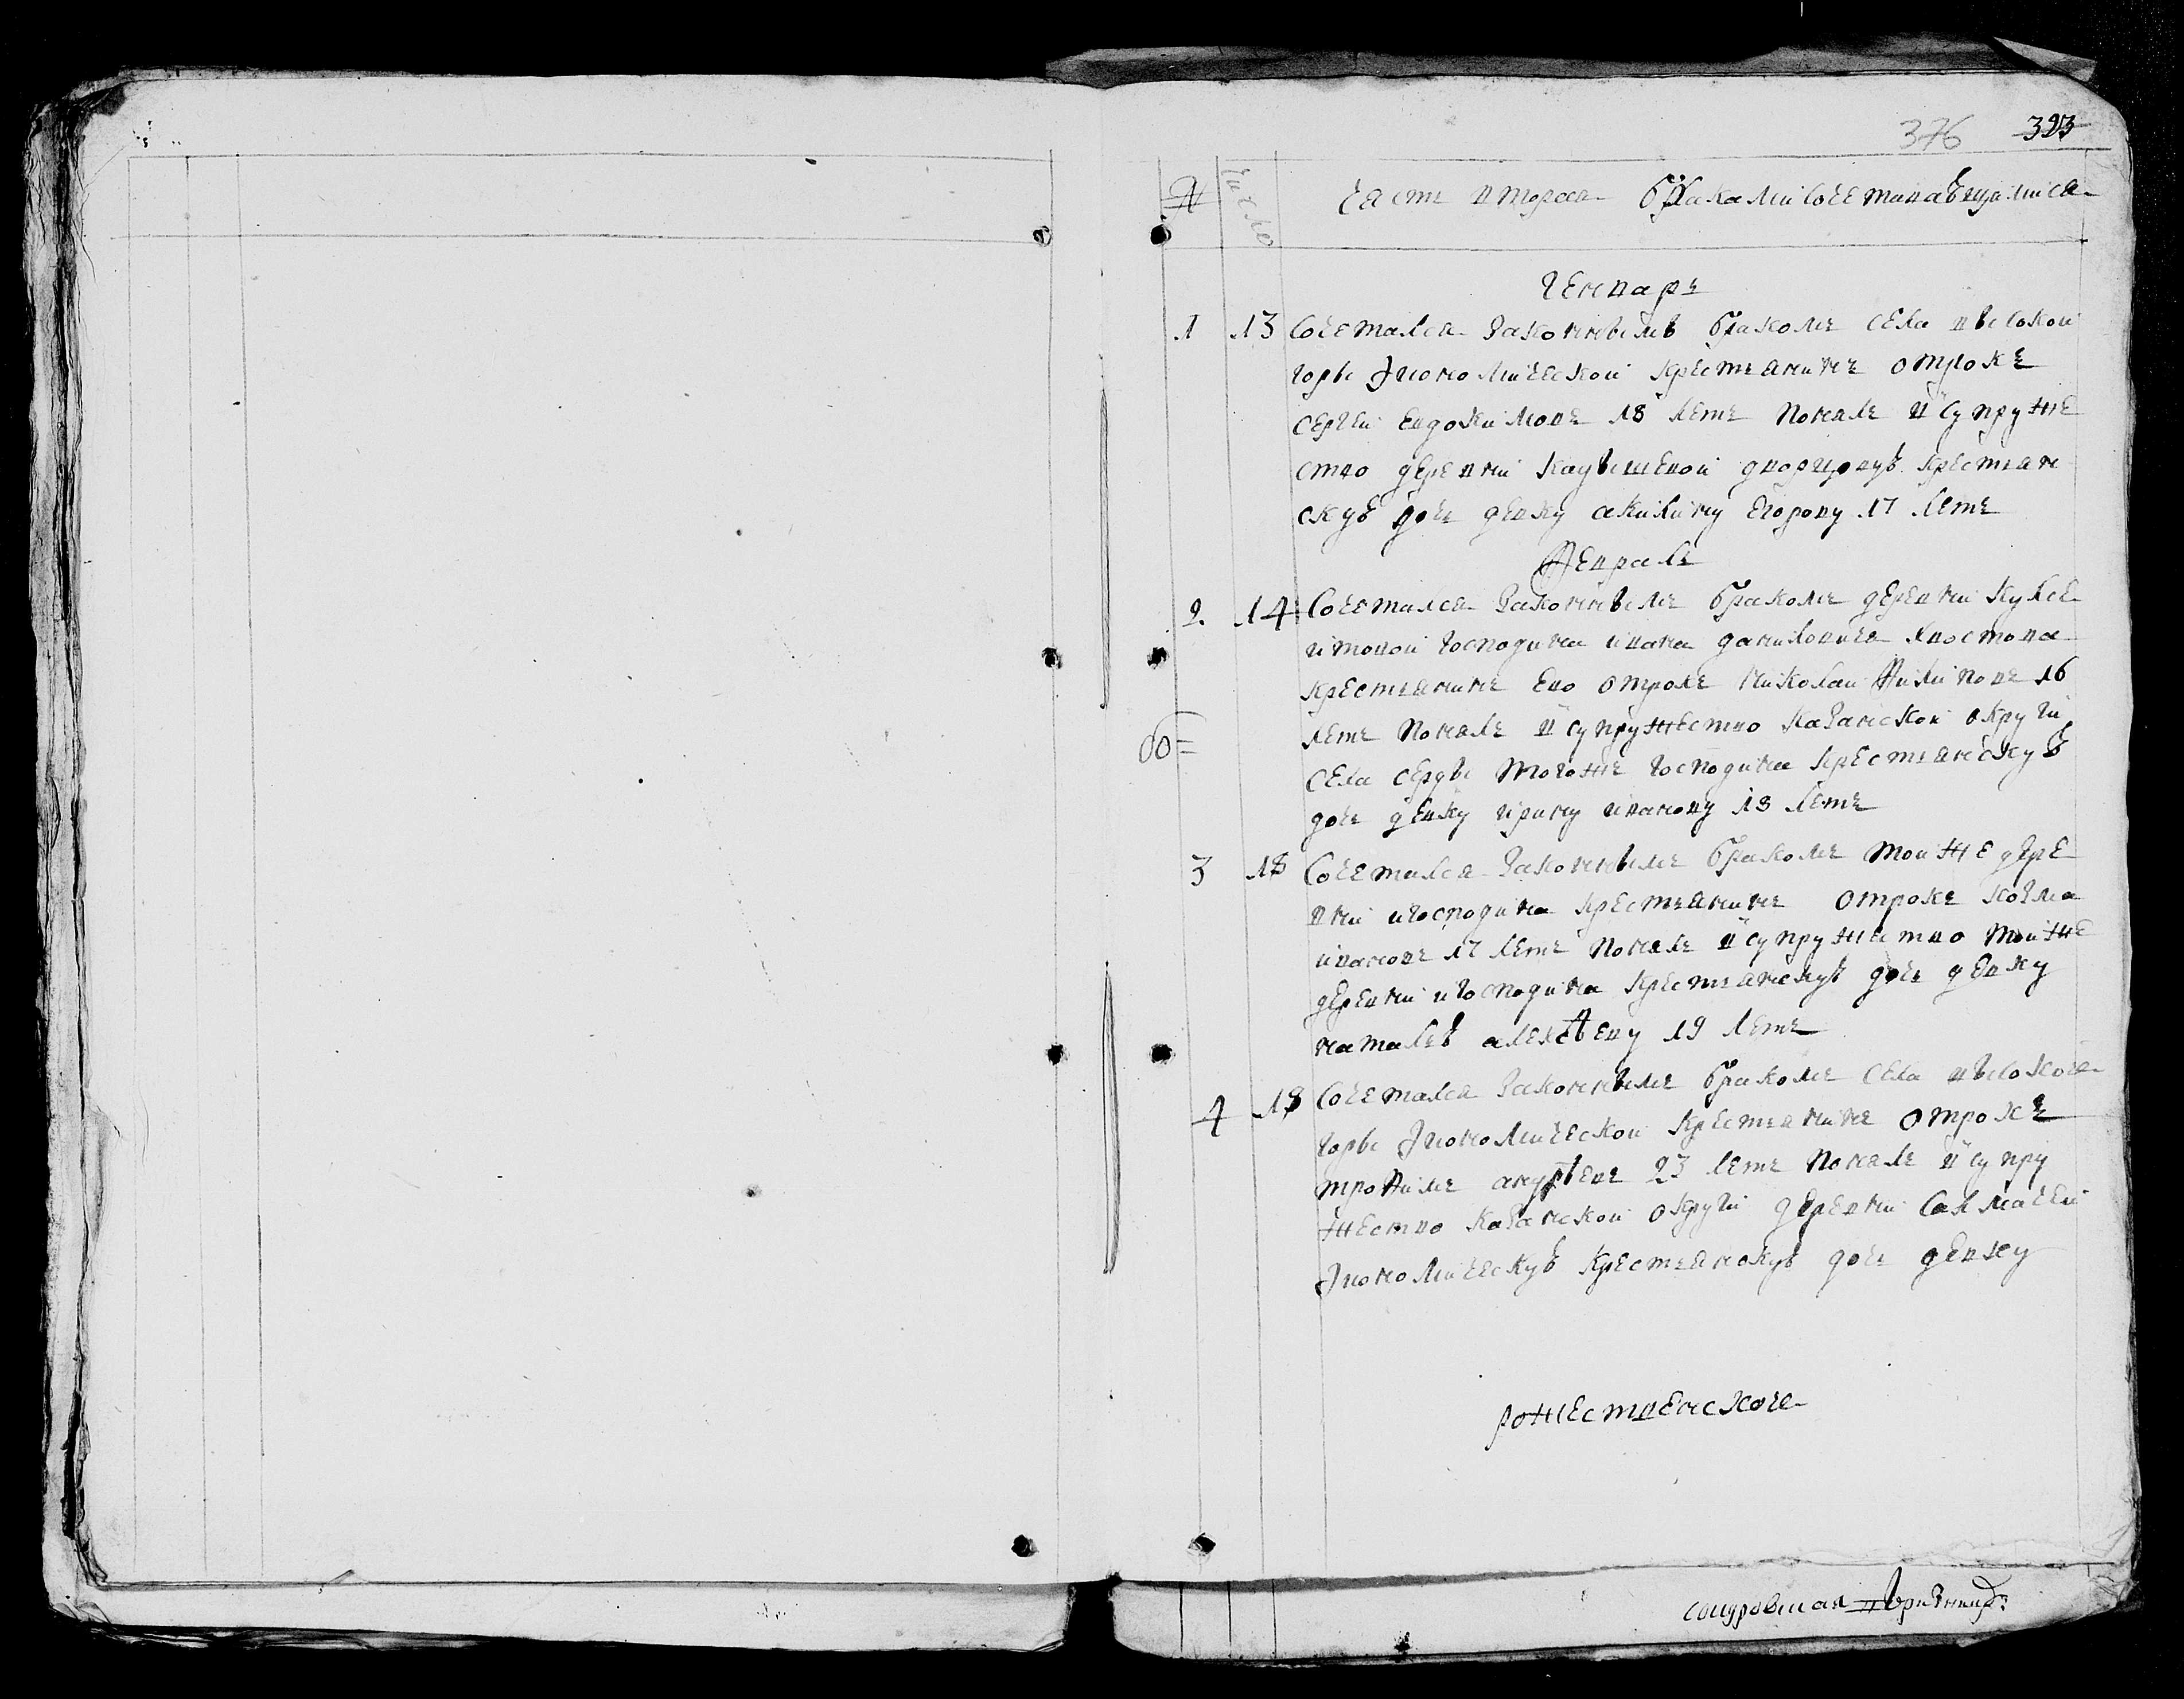 376 323
№ Число Часть вторая Браками Сочетававщимися
Генварь
1 13 Сочетался Законнымъ бракомъ села высокой
горы Экономической крестьянинъ отрокъ
сергеи евдокимовъ 18 летъ Понялъ в супруже
ство деревни каДышевой дворцовую крестьян
скую дочь девку акилину егорову 17 летъ
Февраль
2. 14 Сочетался Законнымъ бракомъ деревни куксе
итовой господина ивана даниловича хвостова
крестьянинъ Ево отрокъ николаи Филиповъ 16
летъ Понялъ в супружество казанской округи
села серды тогожъ господина крестьянскую
дочь девку ирину иванову 18 летъ
3 18 Сочетался Законнымъ бракомъ тойже дере
вни игосподина крестьянинъ отрокъ козма
ивановъ 17 летъ Понялъ в супружество тойже
деревни игосподина крестьянскую дочь девку
наталью алексѣеву 19 летъ
4 18 Сочетался Законнымъ бракомъ села высокоя
горы Экономической крестьянинъ отрокъ
трофимъ 23 летъ Понялъ в супру
жество казанской округи деревни
Экономическую крестьянскую дочь девку
рожественская